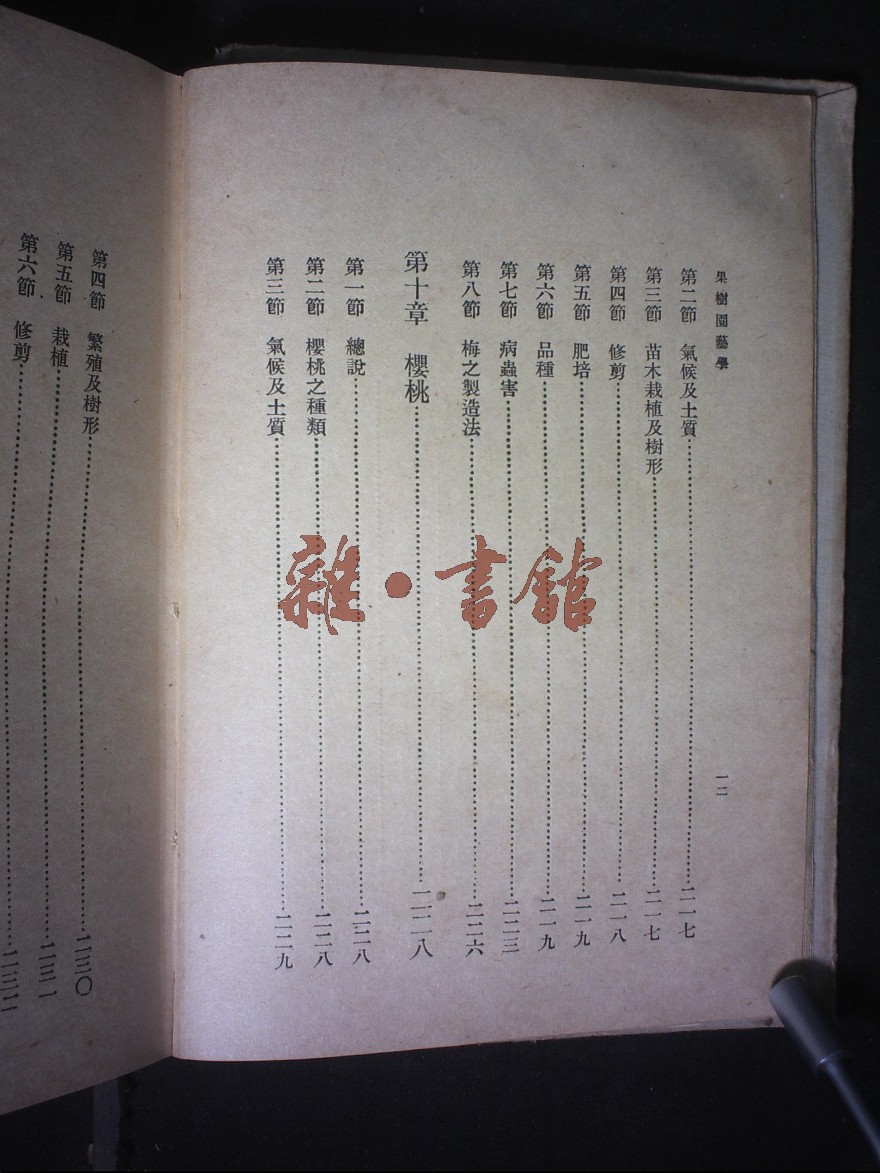 果樹園藝學
一二
第二節 氣候及土質 二一七
第三節 苗木栽植及樹形 二一七
第四節 修剪 二一八
第五節 肥培 二一九
第六節 品種 二一九
第七節 病蟲害 二二三
第八節 梅之製造法 二二六
第十章 櫻桃 二二八
第一節 總說 二二八
第二節 櫻桃之種類 二二八
第三節 氣候及土質 二二九
第四節 繁殖及樹形 二三〇
第五節 栽植 二三一
第六節 修剪 二三二
雜·書館